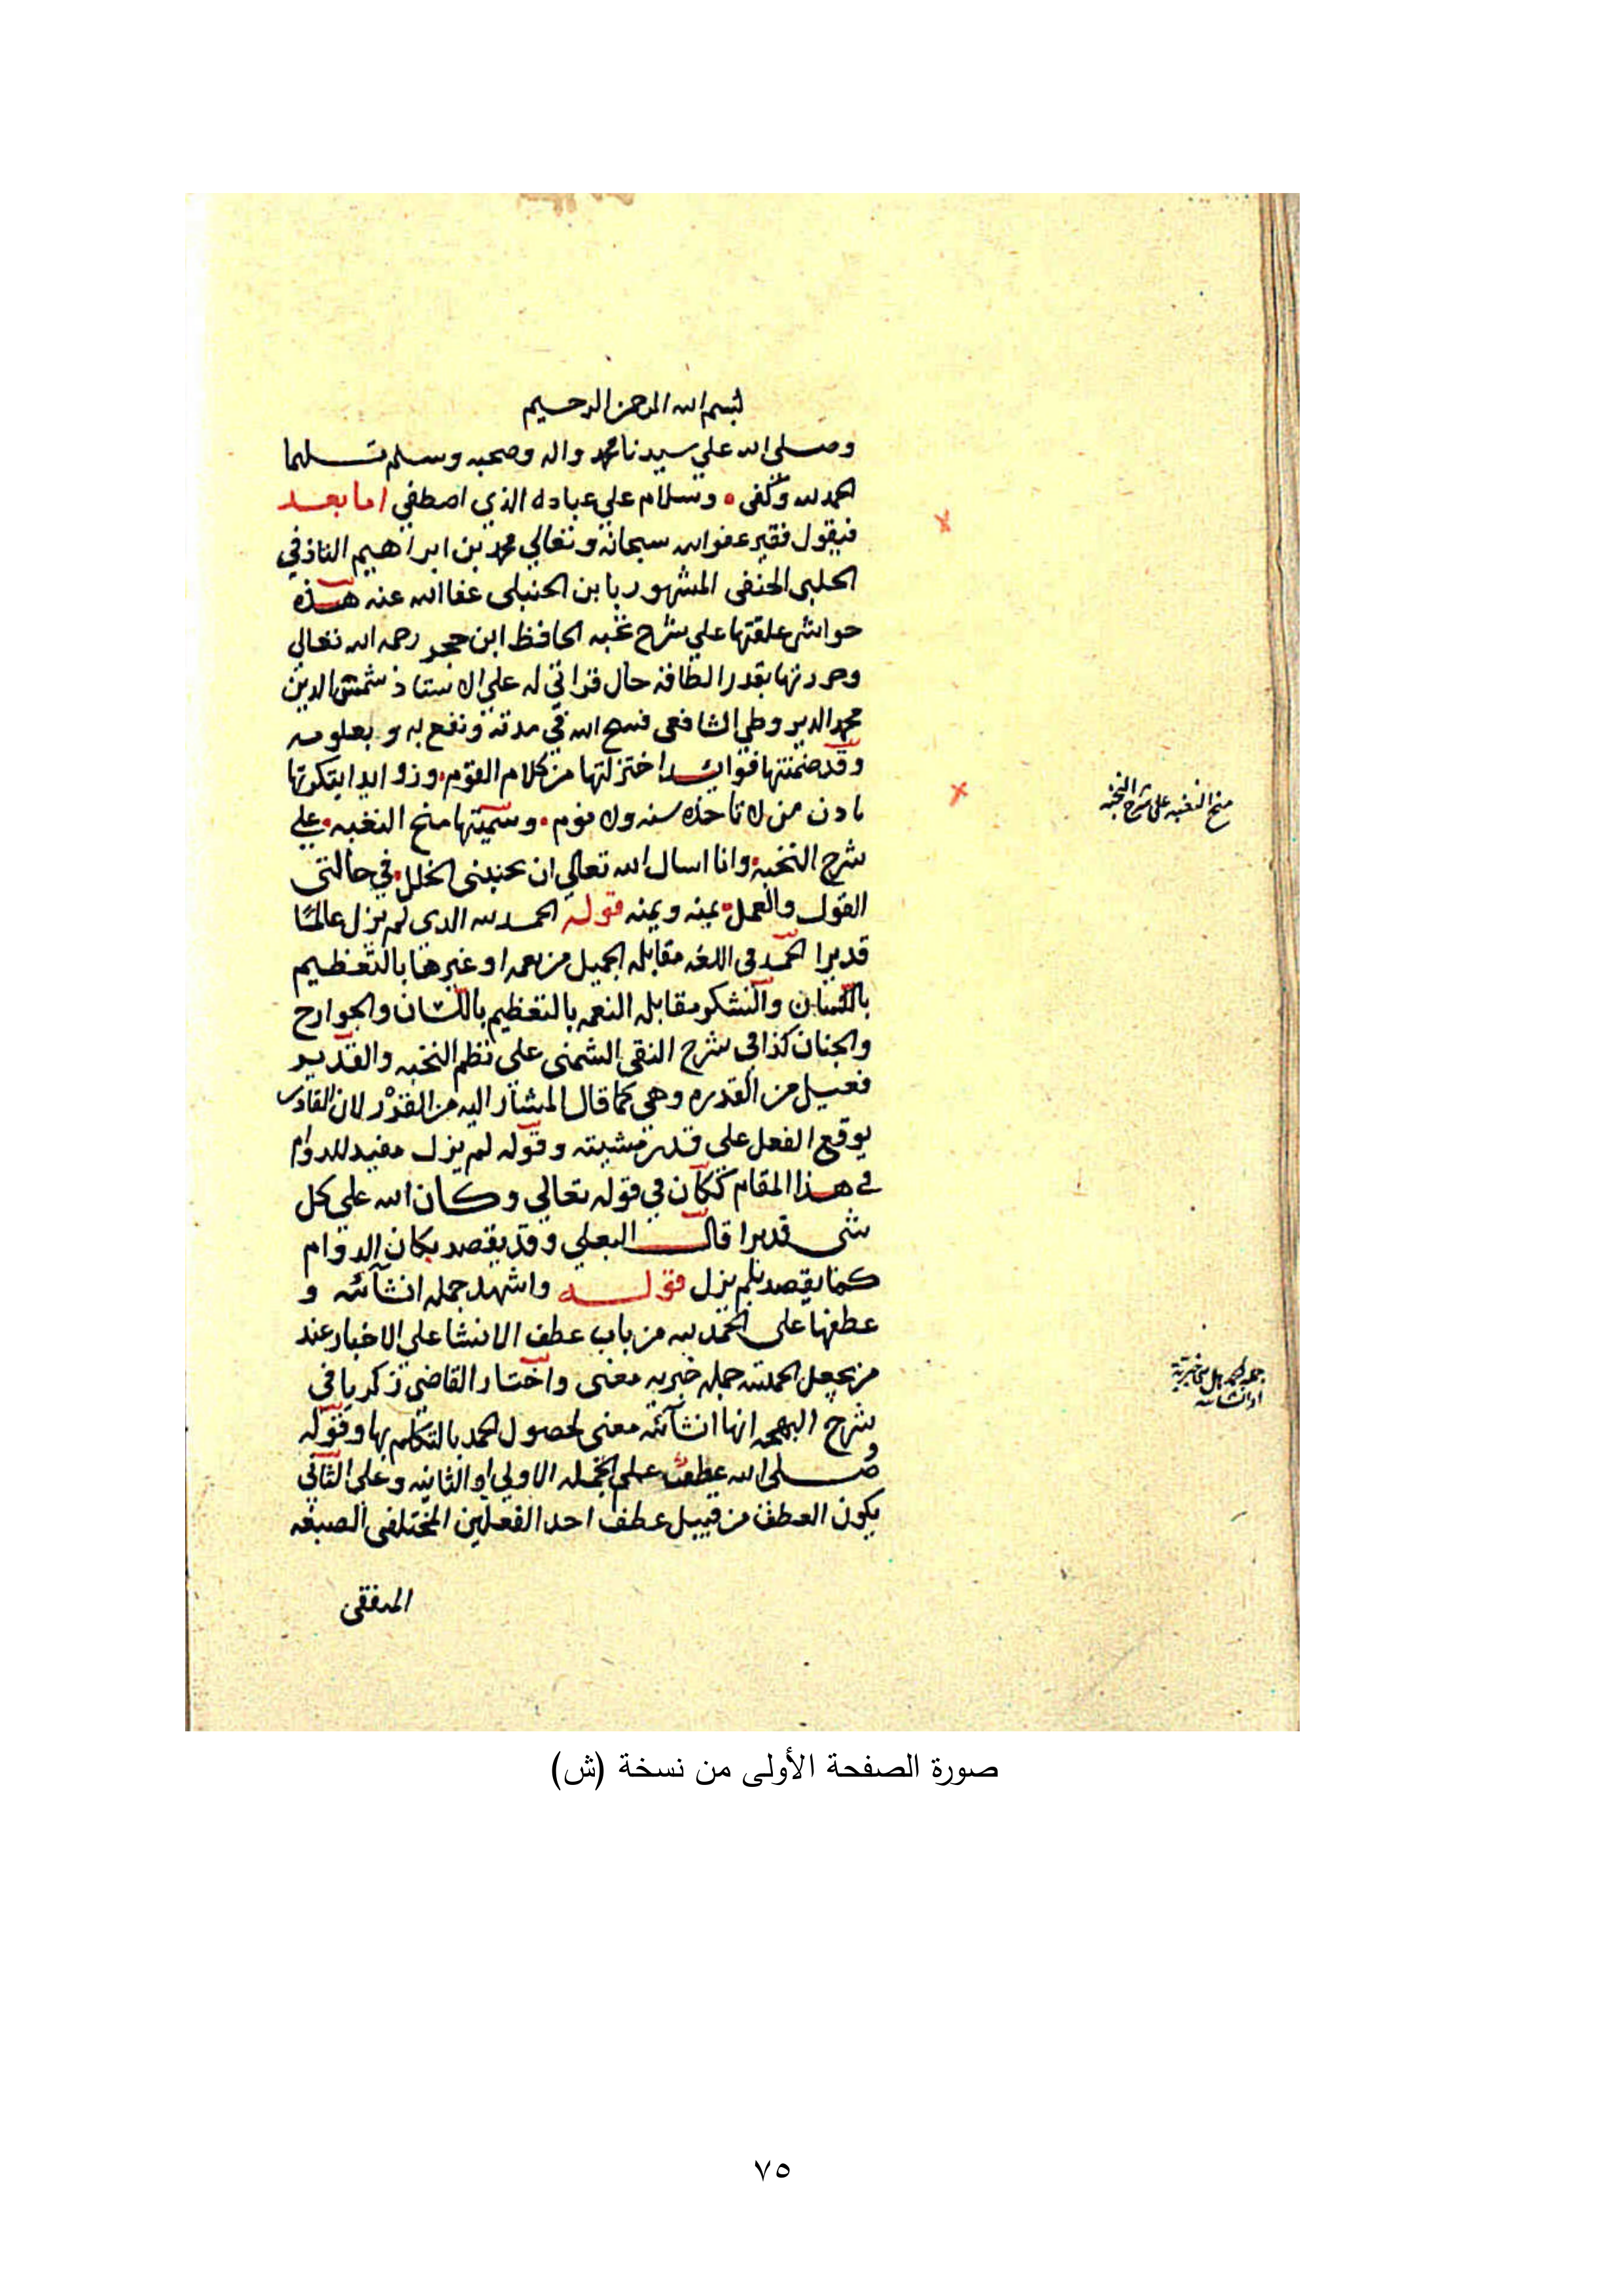 بسم الله الرحمن الرحيم
وصلى الله علي سيدنا محمد واله وصحبه وسلم تسليما
الحمد لله وكفى • وسلام علي عباده الذي اصطفي اما بعد
فيقول فقير عفو الله سبحانه وتعالي محمد بن ابراهيم التاذفي
الحلبي الحنفي المشهور بابن الحنبلي عفا الله عنه هذه
حواش علقتها علي شرح نخبه الحافظ ابن حجر رحمه الله تعالي
وحررتها بقدر الطاقه حال قراتي له علي الاستاذ شمس الدين
محمد الديروطي الشافعي فسح الله في مدته ونفع به وبعلومه
وقد ضمنتها فوائد اختزلتها من كلام القوم • وزوايد ابتكرتها
باذن من لا تاخذه سنه ولا نوم • وسميتها منح النغبه • علي
شرح النخبه • وانا اسال الله تعالي ان يجنبني الخلل • في حالتي
القول والعمل • بمنه ويمنه قوله الحمد لله الذي لم يزل عالما
قديرا الحمد في اللغه مقابله الجميل من نعمه او غيرها بالتعظيم
باللسان والشكر مقابله النعمه بالتعظيم باللسان والجوارح
والجنان كذا في شرح التقي الشمني على نظم النخبه والقدير
فعيل من القدره وهي كما قال المشار اليه من القدر لان القادر
يوقع الفعل على قدر مشيته وقوله لم يزل مفيد للدوام
في هذا المقام ككان في قوله تعالي وكان الله علي كل
شي قديرا قال البعلي وقد يقصد بكان الدوام
كما يقصد بلم يزل قوله واشهد جمله انشائيه و
عطفها على الحمد لله من باب عطف الانشا على الاخبار عند
من يجعل الحمدله جمله خبريه معنى واختار القاضي زكريا في
شرح البهجه انها انشائيه معنى لحصول الحمد بالتكلم بها وقوله
وصلى الله عطف على الجمله الاولي او الثانيه وعلى الثاني
يكون العطف من قبيل عطف احد الفعلين المختلفي الصيغه
المتفقي
منح النغبه على شرح النخبه
جمله الحمد هل هي خبرية
او انشائيه
صورة الصفحة الأولى من نسخة (ش)
٧٥